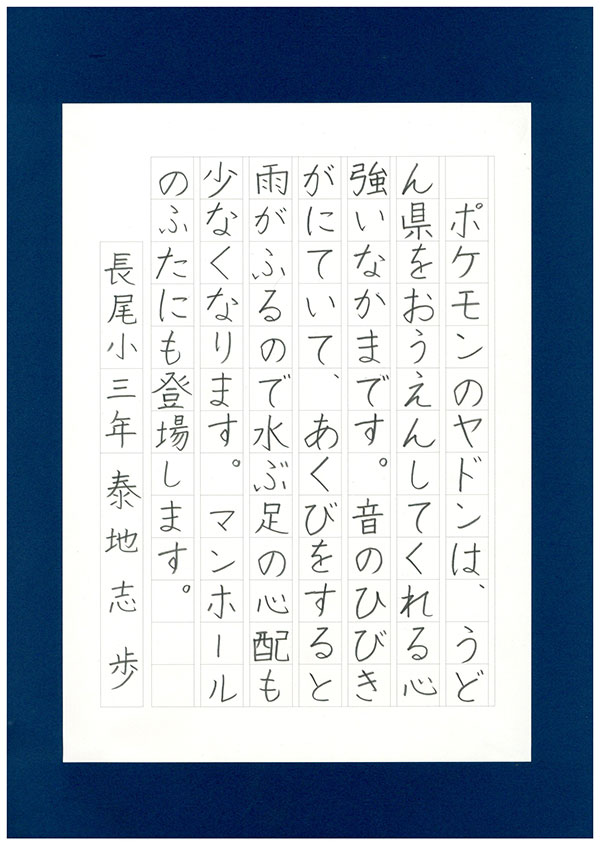 ポケモンのヤドンは、うど
ん県をおうえんしてくれる心
強いなかまです。音のひびき
がにていて、あくびをすると
雨がふるので水ぶ足の心配も
少なくなります。マンホール
のふたにも登場します。
長尾小三年 泰地志 歩